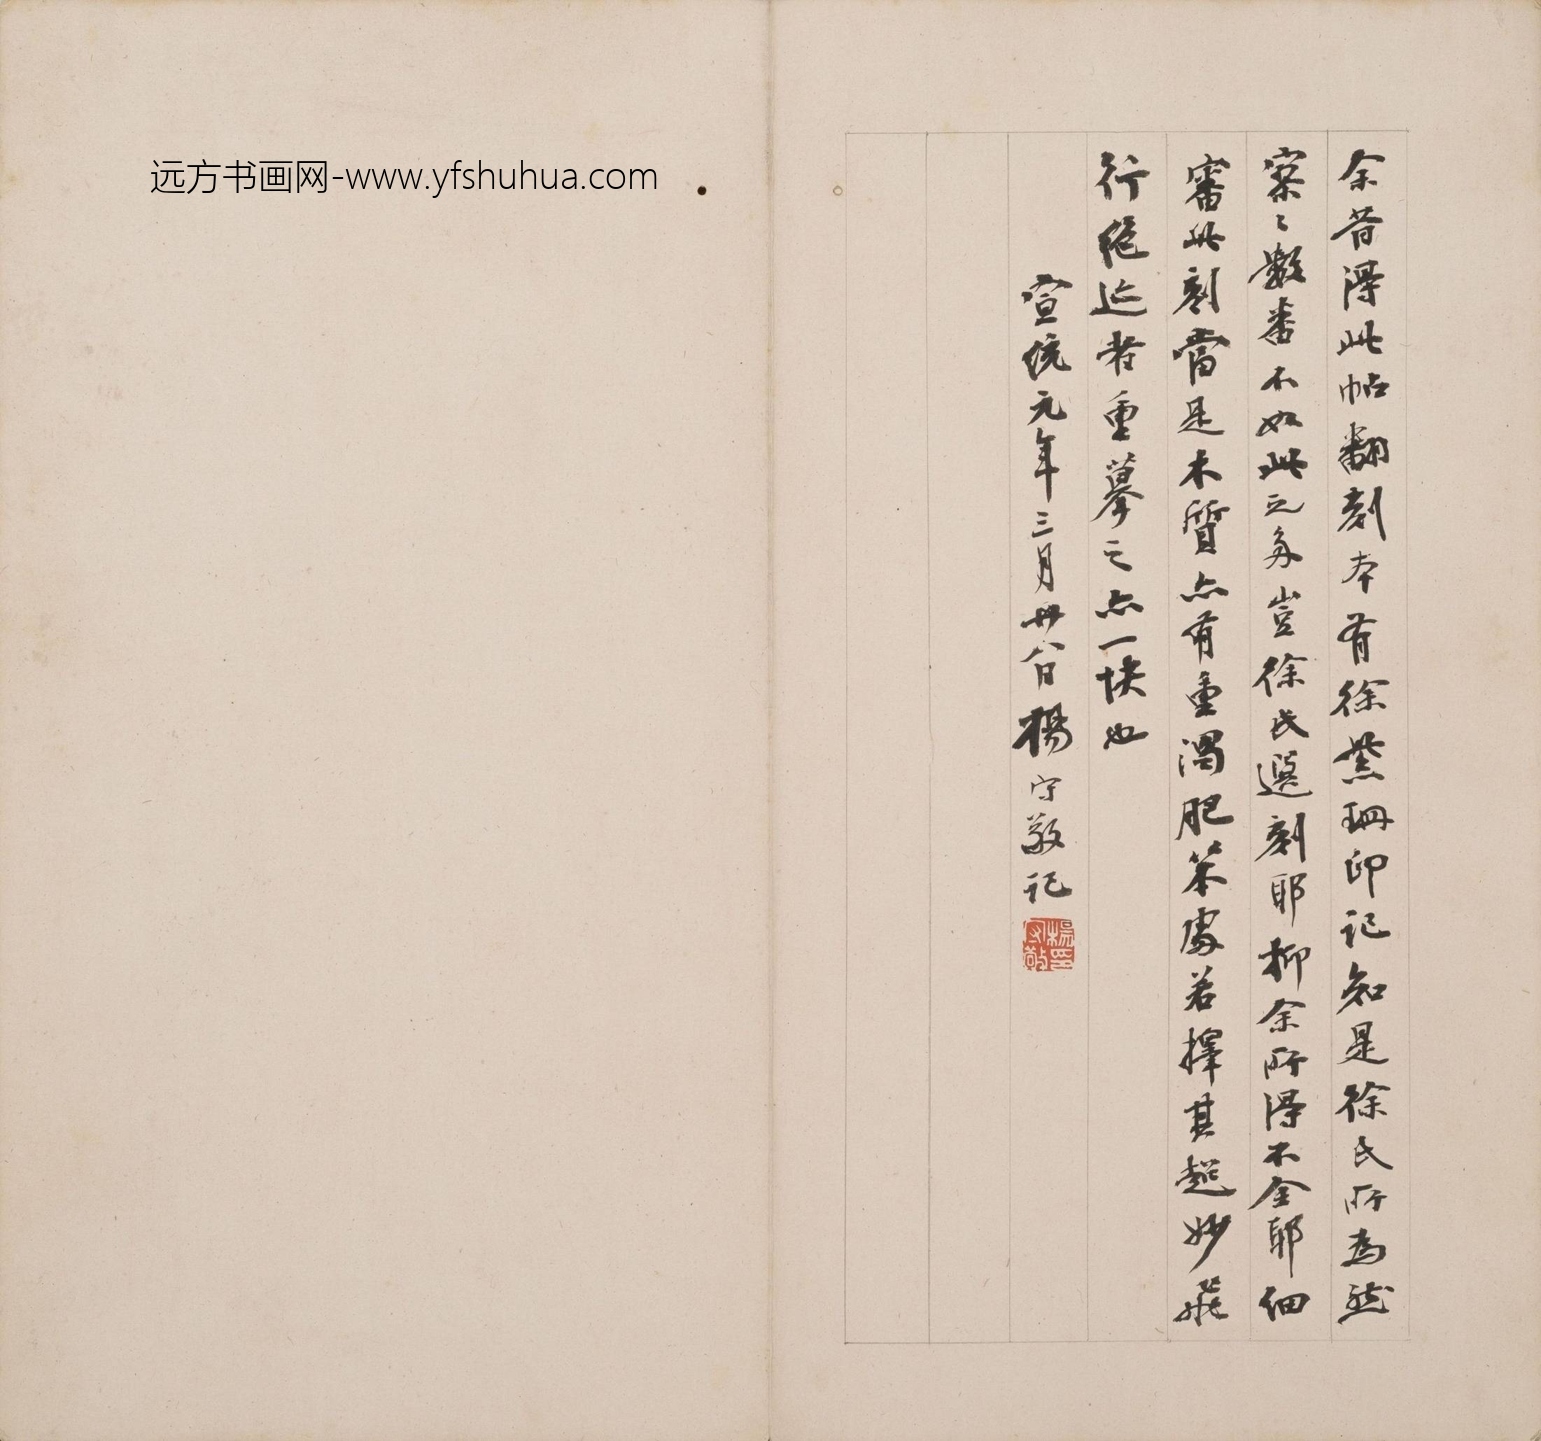 余昔得此帖翻刻本有徐紫珊印记知是徐氏所为然
寥〻数番不如此之多岂徐氏选刻耶抑余所得不全耶细
審此刻當是木質亦有重濁肥笨處若擇其超妙飛
行絕迹者重摹之亦一快也
宣統元年三月廿八日楊守敬記
楊守敬印
远方书画网-www.yfshuhua.com